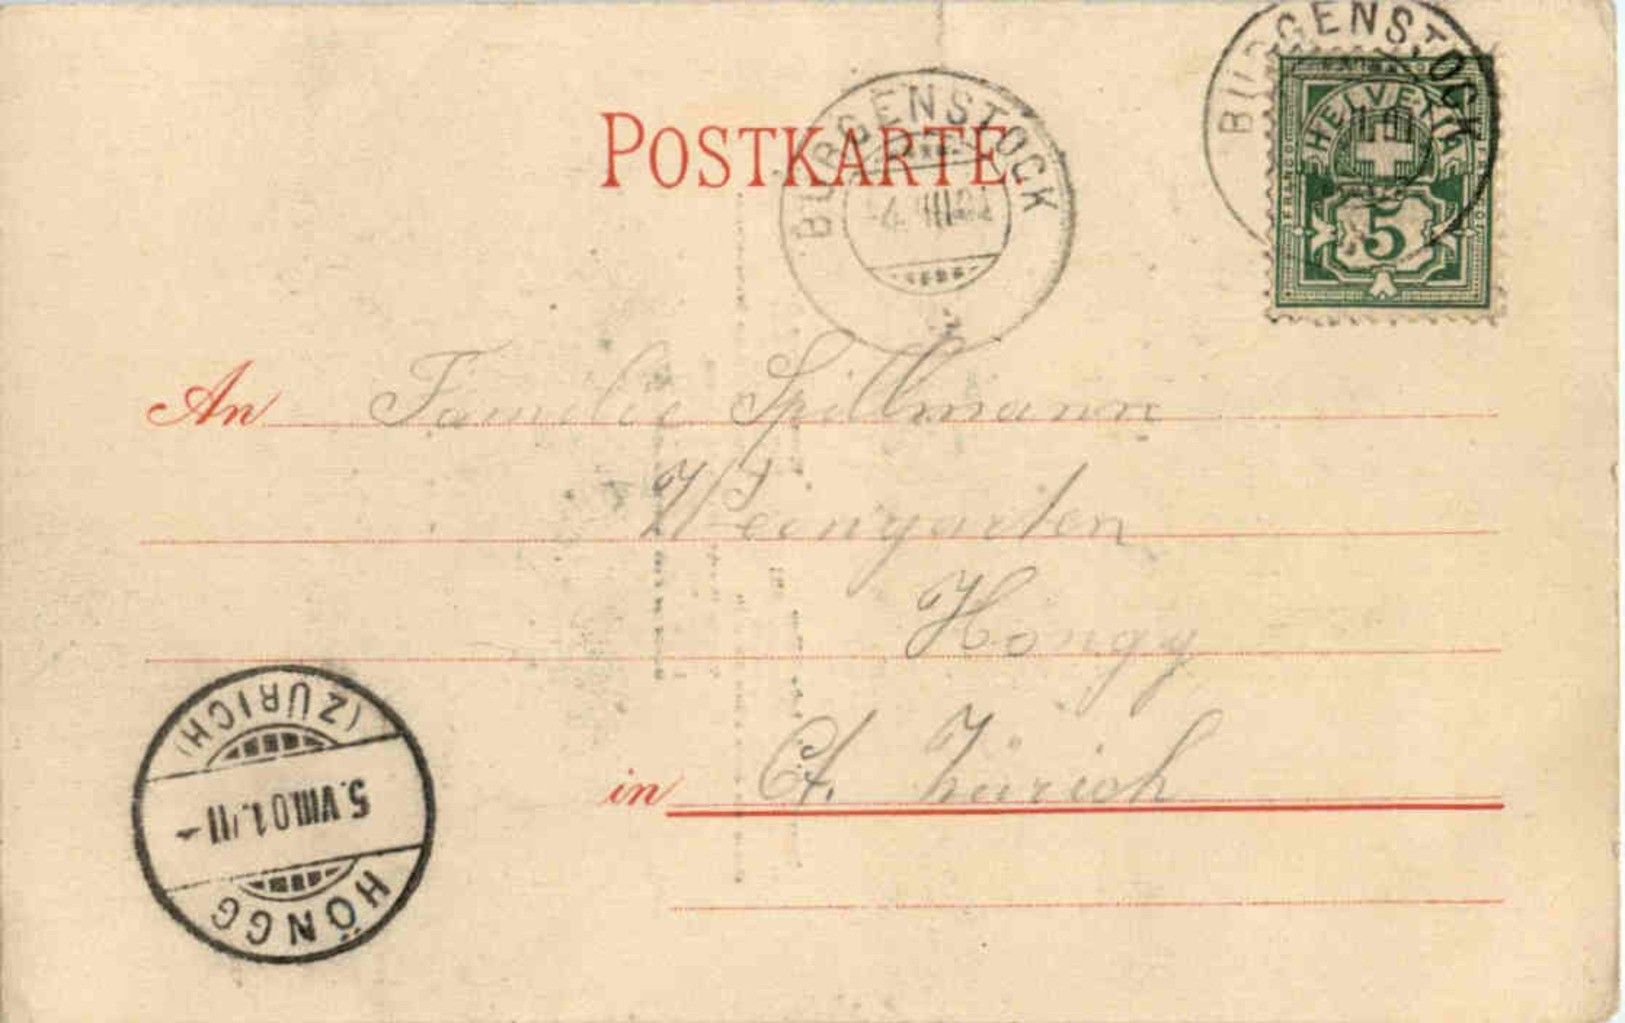 BÜRGENSTOCK
HELVETIA
FRANCO
5
POSTKARTE.
BÜRGENSTOCK
An Familie Spillmann
Weingarten
Höngg
in Ct. Zürich
(ZÜRICH)
5.VIII.01.11-
HÖNGG